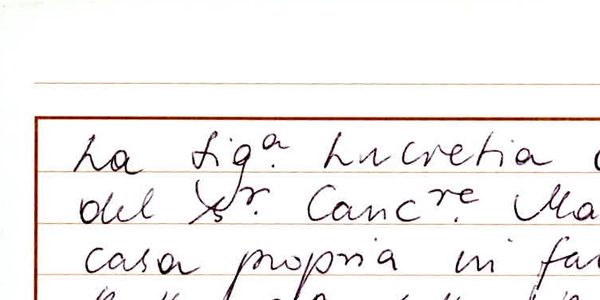 La Sig.ª Lucretia
del Sr. Canc.re
casa propria in